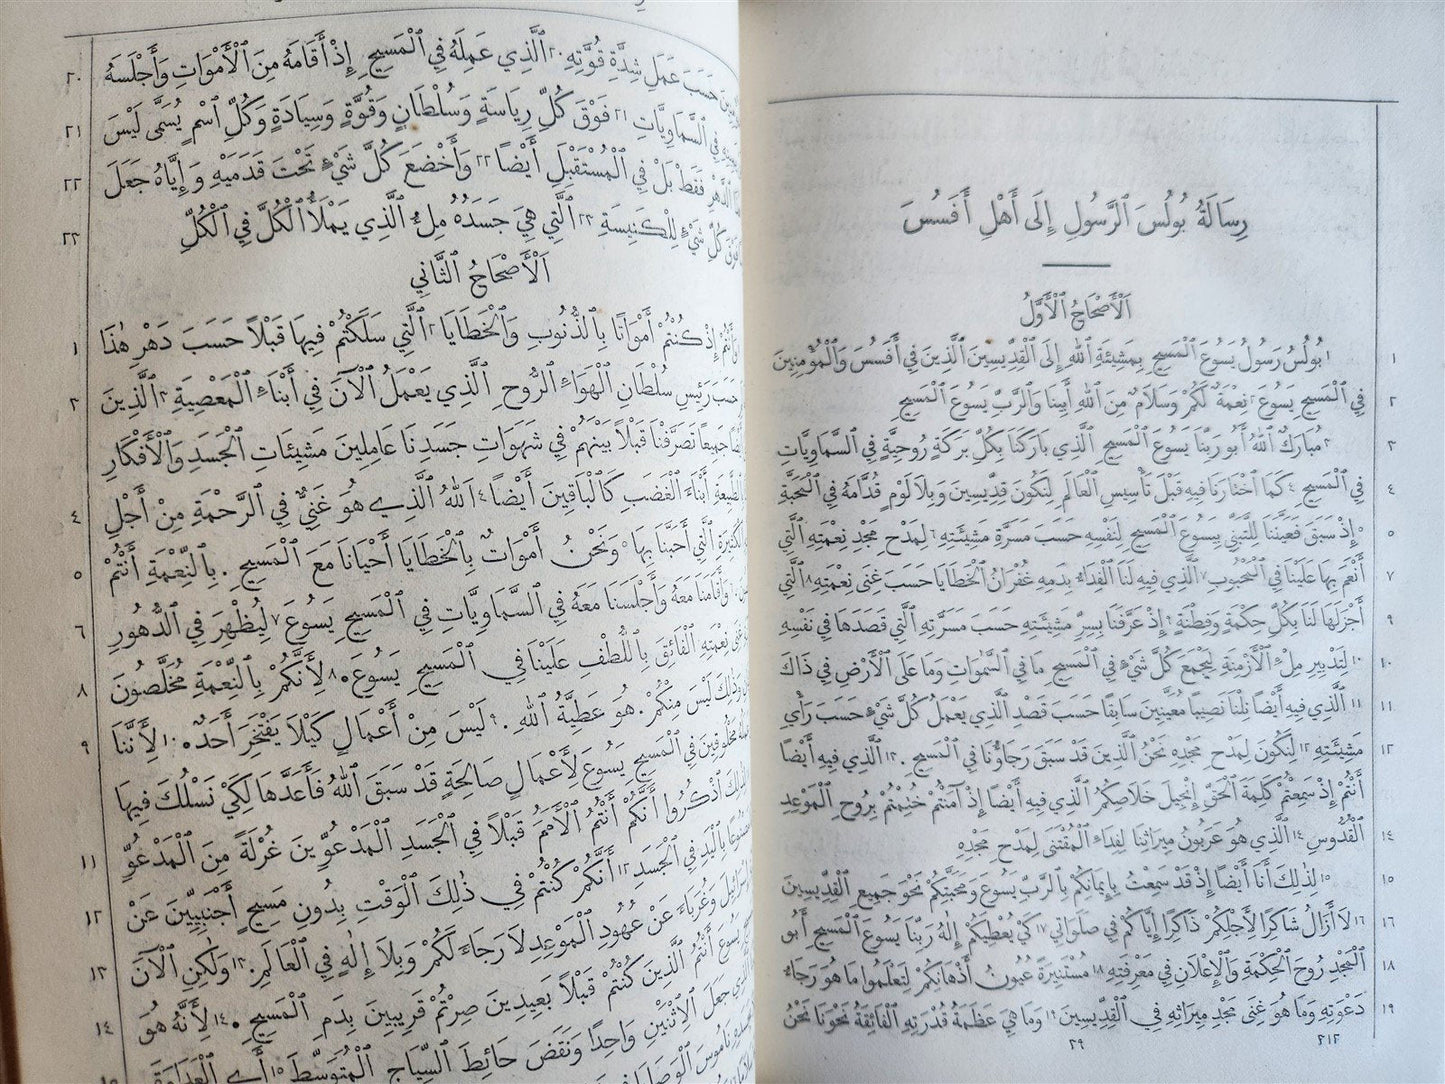 رِسَالَةُ بُولُسَ ٱلرَّسُولِ إِلَى أَهْلِ أَفَسُسَ
اَلْأَصْحَاحُ ٱلْأَوَّلُ
١ ١ بُولُسُ رَسُولُ يَسُوعَ ٱلْمَسِيحِ بِمَشِيئَةِ ٱللهِ إِلَى ٱلْقِدِّيسِينَ ٱلَّذِينَ فِي أَفَسُسَ وَٱلْمُؤْمِنِينَ
٢ فِي ٱلْمَسِيحِ يَسُوعَ ٢ نِعْمَةٌ لَكُمْ وَسَلَامٌ مِنَ ٱللهِ أَبِينَا وَٱلرَّبِّ يَسُوعَ ٱلْمَسِيحِ
٣ ٣ مُبَارَكٌ ٱللهُ أَبُو رَبِّنَا يَسُوعَ ٱلْمَسِيحِ ٱلَّذِي بَارَكَنَا بِكُلِّ بَرَكَةٍ رُوحِيَّةٍ فِي ٱلسَّمَاوِيَّاتِ
٤ فِي ٱلْمَسِيحِ ٤ كَمَا ٱخْتَارَنَا فِيهِ قَبْلَ تَأْسِيسِ ٱلْعَالَمِ لِنَكُونَ قِدِّيسِينَ وَبِلَا لَوْمٍ قُدَّامَهُ فِي ٱلْمَحَبَّةِ
٥ ٥ إِذْ سَبَقَ فَعَيَّنَنَا لِلتَّبَنِّي بِيَسُوعَ ٱلْمَسِيحِ لِنَفْسِهِ حَسَبَ مَسَرَّةِ مَشِيئَتِهِ ٦ لِمَدْحِ مَجْدِ نِعْمَتِهِ ٱلَّتِي
٧ أَنْعَمَ بِهَا عَلَيْنَا فِي ٱلْمَحْبُوبِ ٧ ٱلَّذِي فِيهِ لَنَا ٱلْفِدَاءُ بِدَمِهِ غُفْرَانُ ٱلْخَطَايَا حَسَبَ غِنَى نِعْمَتِهِ ٨ ٱلَّتِي
٩ أَجْزَلَهَا لَنَا بِكُلِّ حِكْمَةٍ وَفِطْنَةٍ ٩ إِذْ عَرَّفَنَا بِسِرِّ مَشِيئَتِهِ حَسَبَ مَسَرَّتِهِ ٱلَّتِي قَصَدَهَا فِي نَفْسِهِ
١٠ ١٠ لِتَدْبِيرِ مِلْءِ ٱلْأَزْمِنَةِ لِيَجْمَعَ كُلَّ شَيْءٍ فِي ٱلْمَسِيحِ مَا فِي ٱلسَّمٰوَاتِ وَمَا عَلَى ٱلْأَرْضِ فِي ذَاكَ
١١ ١١ ٱلَّذِي فِيهِ أَيْضًا نِلْنَا نَصِيبًا مُعَيَّنِينَ سَابِقًا حَسَبَ قَصْدِ ٱلَّذِي يَعْمَلُ كُلَّ شَيْءٍ حَسَبَ رَأْيِ
١٢ مَشِيئَتِهِ ١٢ لِنَكُونَ لِمَدْحِ مَجْدِهِ نَحْنُ ٱلَّذِينَ قَدْ سَبَقَ رَجَاؤُنَا فِي ٱلْمَسِيحِ. ١٣ ٱلَّذِي فِيهِ أَيْضًا
أَنْتُمْ إِذْ سَمِعْتُمْ كَلِمَةَ ٱلْحَقِّ إِنْجِيلَ خَلَاصِكُمُ ٱلَّذِي فِيهِ أَيْضًا إِذْ آمَنْتُمْ خُتِمْتُمْ بِرُوحِ ٱلْمَوْعِدِ
١٤ ٱلْقُدُّوسِ ١٤ ٱلَّذِي هُوَ عَرَبُونُ مِيرَاثِنَا لِفِدَاءِ ٱلْمُقْتَنَى لِمَدْحِ مَجْدِهِ
١٥ ١٥ لِذٰلِكَ أَنَا أَيْضًا إِذْ قَدْ سَمِعْتُ بِإِيمَانِكُمْ بِٱلرَّبِّ يَسُوعَ وَمَحَبَّتِكُمْ نَحْوَ جَمِيعِ ٱلْقِدِّيسِينَ
١٦ ١٦ لَا أَزَالُ شَاكِرًا لِأَجْلِكُمْ ذَاكِرًا إِيَّاكُمْ فِي صَلَوَاتِي ١٧ كَيْ يُعْطِيَكُمْ إِلٰهُ رَبِّنَا يَسُوعَ ٱلْمَسِيحِ أَبُو
١٨ ٱلْمَجْدِ رُوحَ ٱلْحِكْمَةِ وَٱلْإِعْلَانِ فِي مَعْرِفَتِهِ ١٨ مُسْتَنِيرَةً عُيُونُ أَذْهَانِكُمْ لِتَعْلَمُوا مَا هُوَ رَجَاءُ
١٩ دَعْوَتِهِ وَمَا هُوَ غِنَى مَجْدِ مِيرَاثِهِ فِي ٱلْقِدِّيسِينَ ١٩ وَمَا هِيَ عَظَمَةُ قُدْرَتِهِ ٱلْفَائِقَةُ نَحْوَنَا نَحْنُ
٣١٢ ٣٩
حَسَبَ عَمَلِ شِدَّةِ قُوَّتِهِ ٢٠ ٱلَّذِي عَمِلَهُ فِي ٱلْمَسِيحِ إِذْ أَقَامَهُ مِنَ ٱلْأَمْوَاتِ وَأَجْلَسَهُ ٢٠
فِي ٱلسَّمَاوِيَّاتِ ٢١ فَوْقَ كُلِّ رِيَاسَةٍ وَسُلْطَانٍ وَقُوَّةٍ وَسِيَادَةٍ وَكُلِّ ٱسْمٍ يُسَمَّى لَيْسَ ٢١
ٱلدَّهْرِ فَقَطْ بَلْ فِي ٱلْمُسْتَقْبَلِ أَيْضًا ٢٢ وَأَخْضَعَ كُلَّ شَيْءٍ تَحْتَ قَدَمَيْهِ وَإِيَّاهُ جَعَلَ ٢٢
فَوْقَ كُلِّ شَيْءٍ لِلْكَنِيسَةِ ٢٣ ٱلَّتِي هِيَ جَسَدُهُ مِلْءُ ٱلَّذِي يَمْلَأُ ٱلْكُلَّ فِي ٱلْكُلِّ ٢٣
اَلْأَصْحَاحُ ٱلثَّانِي
وَأَنْتُمْ إِذْ كُنْتُمْ أَمْوَاتًا بِٱلذُّنُوبِ وَٱلْخَطَايَا ٢ ٱلَّتِي سَلَكْتُمْ فِيهَا قَبْلًا حَسَبَ دَهْرِ هٰذَا ١
حَسَبَ رَئِيسِ سُلْطَانِ ٱلْهَوَاءِ ٱلرُّوحِ ٱلَّذِي يَعْمَلُ ٱلْآنَ فِي أَبْنَاءِ ٱلْمَعْصِيَةِ ٣ ٱلَّذِينَ ٢
جَمِيعًا تَصَرَّفْنَا قَبْلًا بَيْنَهُمْ فِي شَهَوَاتِ جَسَدِنَا عَامِلِينَ مَشِيئَاتِ ٱلْجَسَدِ وَٱلْأَفْكَارِ
بِٱلطَّبِيعَةِ أَبْنَاءَ ٱلْغَضَبِ كَٱلْبَاقِينَ أَيْضًا ٤ اَللهُ ٱلَّذِي هُوَ غَنِيٌّ فِي ٱلرَّحْمَةِ مِنْ أَجْلِ ٤
ٱلْكَثِيرَةِ ٱلَّتِي أَحَبَّنَا بِهَا ٥ وَنَحْنُ أَمْوَاتٌ بِٱلْخَطَايَا أَحْيَانَا مَعَ ٱلْمَسِيحِ. بِٱلنِّعْمَةِ أَنْتُمْ ٥
٦ وَأَقَامَنَا مَعَهُ وَأَجْلَسَنَا مَعَهُ فِي ٱلسَّمَاوِيَّاتِ فِي ٱلْمَسِيحِ يَسُوعَ ٧ لِيُظْهِرَ فِي ٱلدُّهُورِ ٦
غِنَى نِعْمَتِهِ ٱلْفَائِقَ بِٱللُّطْفِ عَلَيْنَا فِي ٱلْمَسِيحِ يَسُوعَ. ٨ لِأَنَّكُمْ بِٱلنِّعْمَةِ مُخَلَّصُونَ ٨
وَذٰلِكَ لَيْسَ مِنْكُمْ. هُوَ عَطِيَّةُ ٱللهِ. ٩ لَيْسَ مِنْ أَعْمَالٍ كَيْلَا يَفْتَخِرَ أَحَدٌ. ١٠ لِأَنَّنَا ٩
مَخْلُوقِينَ فِي ٱلْمَسِيحِ يَسُوعَ لِأَعْمَالٍ صَالِحَةٍ قَدْ سَبَقَ ٱللهُ فَأَعَدَّهَا لِكَيْ نَسْلُكَ فِيهَا
لِذٰلِكَ ٱذْكُرُوا أَنَّكُمْ أَنْتُمُ ٱلْأُمَمُ قَبْلًا فِي ٱلْجَسَدِ ٱلْمَدْعُوِّينَ غُرْلَةً مِنَ ٱلْمَدْعُوِّ ١١
مَصْنُوعًا بِٱلْيَدِ فِي ٱلْجَسَدِ ١٢ أَنَّكُمْ كُنْتُمْ فِي ذٰلِكَ ٱلْوَقْتِ بِدُونِ مَسِيحٍ أَجْنَبِيِّينَ عَنْ ١٢
إِسْرَائِيلَ وَغُرَبَاءَ عَنْ عُهُودِ ٱلْمَوْعِدِ لَا رَجَاءَ لَكُمْ وَبِلَا إِلٰهٍ فِي ٱلْعَالَمِ. ١٣ وَلٰكِنِ ٱلْآنَ ١٣
يَسُوعَ أَنْتُمُ ٱلَّذِينَ كُنْتُمْ قَبْلًا بَعِيدِينَ صِرْتُمْ قَرِيبِينَ بِدَمِ ٱلْمَسِيحِ. ١٤ لِأَنَّهُ هُوَ ١٤
ٱلَّذِي جَعَلَ ٱلِٱثْنَيْنِ وَاحِدًا وَنَقَضَ حَائِطَ ٱلسِّيَاجِ ٱلْمُتَوَسِّطَ ١٥ أَيِ ٱلْعَدَاوَةَ ١٥
نَامُوسَ ٱلْوَصَايَا